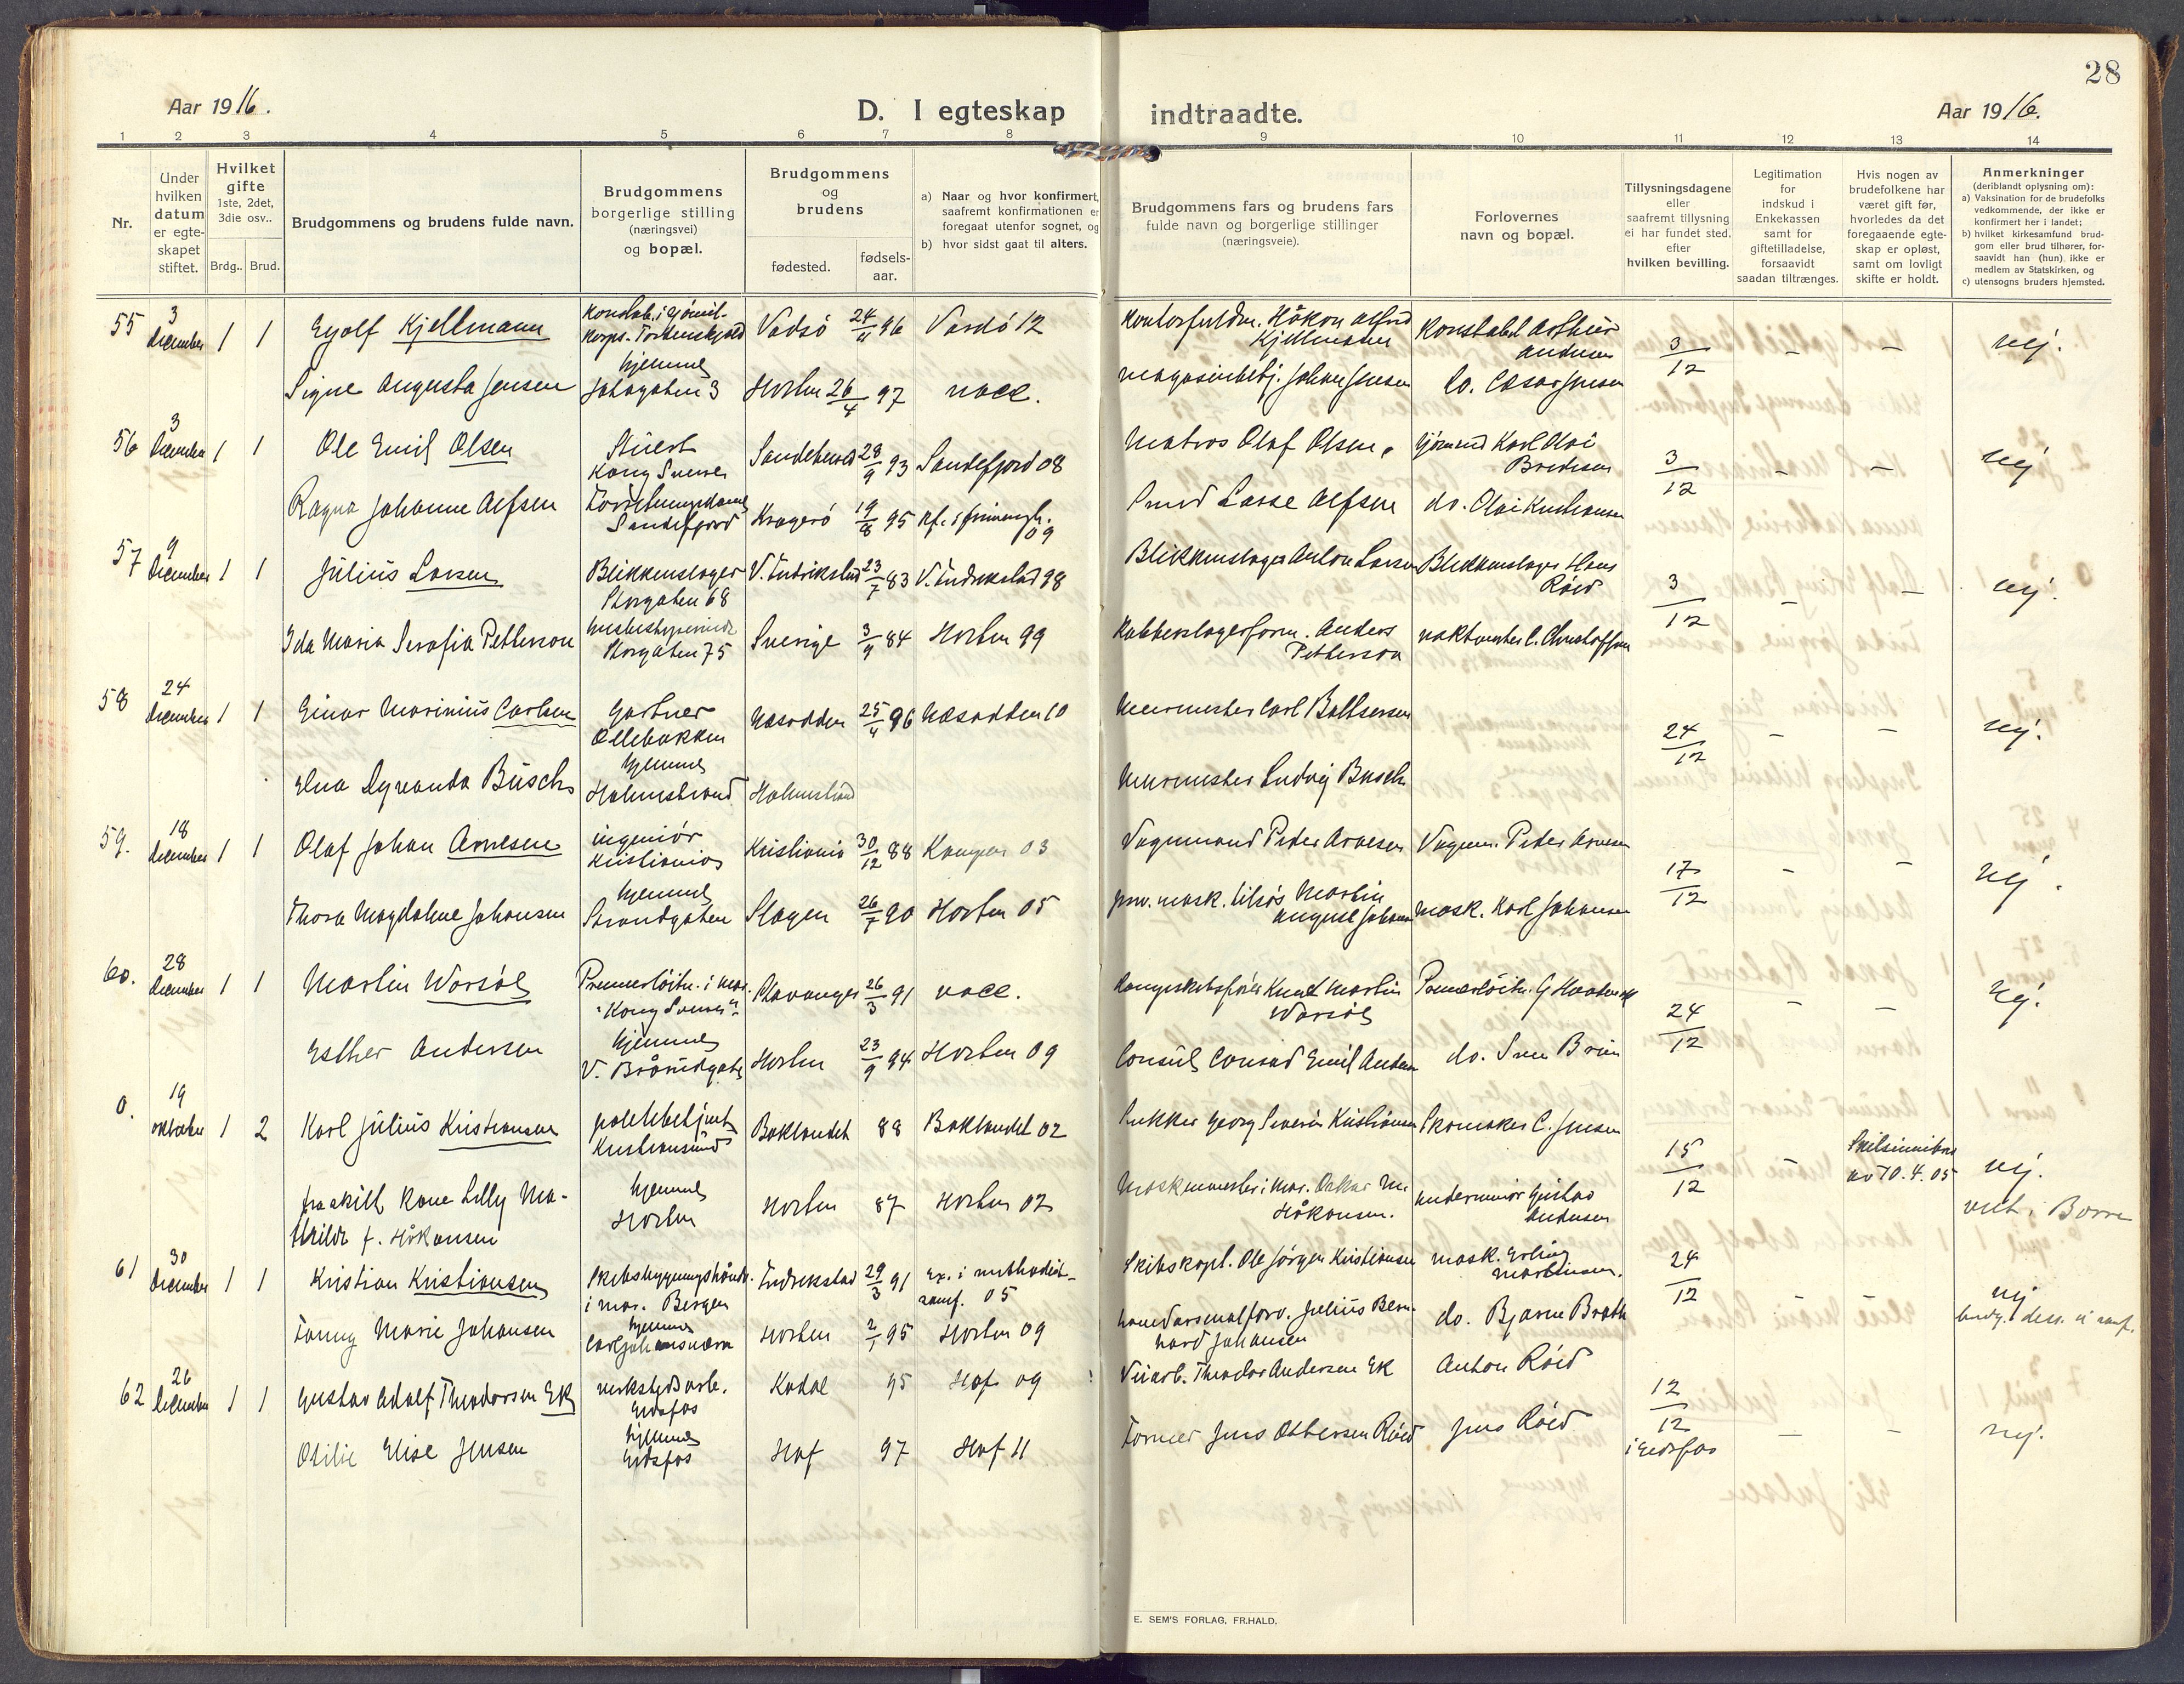 28
Aar 1916.
D. I egteskap indtraadte.
Aar 1916.
1 2 3 4 5 6 7 8 9 10 11 12 13 14
Nr.
Under hvilken datum er egteskapet stiftet.
Hvilket gifte 1ste, 2det, 3die osv..
Brdg.. Brud.
Brudgommens og brudens fulde navn.
Brudgommens borgerlige stilling (næringsvei) og bopæl.
Brudgommens og brudens
fødested.
fødsels-aar.
a) Naar og hvor konfirmert, saafremt konfirmationen er foregaat utenfor sognet, og
b) hvor sidst gaat til alters.
Brudgommens fars og brudens fars fulde navn og borgerlige stillinger (næringsveie).
Forlovernes navn og bopæl.
Tillysningsdagene eller saafremt tillysning ei har fundet sted. efter hvilken bevilling.
Legitimation for indskud i Enkekassen samt for giftetilladelse, forsaavidt saadan tiltrænges.
Hvis nogen av brudefolkene har været gift før, hvorledes da det foregaaende egteskap er opløst, samt om lovligt skifte er holdt.
Anmerkninger
(deriblandt oplysning om):
a) Vaksination for de brudefolks vedkommende, der ikke er konfirmert her i landet;
b) hvilket kirkesamfund brudgom eller brud tilhører, forsaavidt han (hun) ikke er medlem av Statskirken, og
c) utensogns bruders hjemsted.
55 3 december 1 1 Eyolf Kjellmann Vadsö 24/4 96 Vardö 12 Håkon Alfred Kjellmann Konstabel Arthur Andersen 3/12 – – nej.
Signe Augusta Jensen hjemme 3 Horten 26/4 97 vacc. Johan Jensen do. Cæsar Jensen
56 3 december 1 1 Ole Emil Olsen Stuert Kong Sverre Sandeherred 28/9 93 Sandefjord 08 Matros Olaf Olsen, Karl Olai Bredesen 3/12 – – nej
Ragna Johanne Alfsen Sandefjord Kragerö 19/8 95 09 Smed Lasse Alfsen do. Olai Kristiansen
57 9 december 1 1 Julius Larsen Blikkenslager Storgaten 68 V. Fredrikstad 23/7 83 V. Fredrikstad 98 Blikkenslager Anton Larsen Blikkenslager Hans Röed 3/12 – – nej.
Ida Maria Serafia Pettersson Storgaten 75 Sverige 84 Horten 99 Kobberslagerform. Anders Pettersson vaktmester C. Christoffersen
58 24 december 1 1 Einar Marinius Carlsen Gartner Nesodden 25/4 96 Nesodden 10 Murmester Carl Baltsersen 24/12 – – nej.
Elna Busch hjemme Holmestrand Holmestrand Murmester Ludvig Busch
59. 18 december 1 1 Olaf Johan Arnesen ingeniör Kristiania Kristiania 30/12 88 Kampen 03 Vognmand Peder Arnesen Vognm. Peder Arnesen 17/12 – – nej.
Thora Magdalene Johansen hjemme Strandgaten Slagen 26/7 90 Horten 05 Martin August Johansen mask. Karl Johansen
60. 28 december 1 1 Martin Worsöe Premierlöitn. i mar. "Kong Sverre" Stavanger 26/3 91 vacc. Knud Martin Worsöe Premierlöitn. G 24/12 – – nej.
Esther Andersen hjemme V. Braarudgate Horten 23/9 94 Horten 09 Consul Conrad Emil Andersen do. Sven Brun
0. 19 oktober 1 2 Karl Julius Kristiansen politibetjent Kristiansund Baklandet 88 Baklandet 02 Georg Severin Kristiansen Skomaker C. Jensen 15/12 – av 10.4.05 nej.
fraskilt kone Lilly Mathilde f. Håkonsen hjemme Horten Horten 87 Horten 02 Maskinmester i mar. Oskar M. Håkonsen. Gustav Andersen viet i Borre
61 30 december 1 1 Kristian Kristiansen i mar. Bergen Fredrikstad 29/3 91 Ex. i methodistsamf. 05 Skibskapt. Ole Jörgen Kristiansen mask. Erling Martinsen. 24/12 nej
Fanny Marie Johansen hjemme Carljohansværn Horten 2/1 95 Horten 09 Julius Bernhard Johansen do. Bjarne Brath
62 26 december 1 1 Gustav Adolf Theodorsen Ek verkstedsarb. Eidsfos Kodal 95 Hof 09 Theodor Andersen Ek Anton Röed 12/12 i Eidsfos – – nej.
Otilie Elise Jensen hjemme Eidsfos Hof 97 Hof 11 Former Jens Ottersen Röed Jens Röed
E. SEM'S FORLAG, FR.HALD.